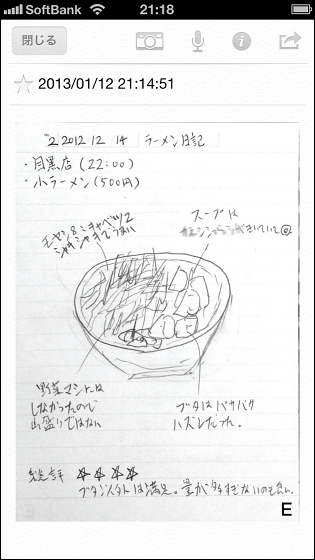 SoftBank 21:18
閉じる
2013/01/12 21:14:51
2012 12 14 ラーメン日記
・目黒店(22:00)
・小ラーメン(500円)
モヤシ8:キャベツ2
シャキシャキでうまい
スープは
きいていて◎
野菜マシでは
しなかったので
山盛りではない
ブタはパサパサ
ハズレだった。
総評 ☆☆☆☆
ブタ以外は満足。量が多すぎないのも良い。
E